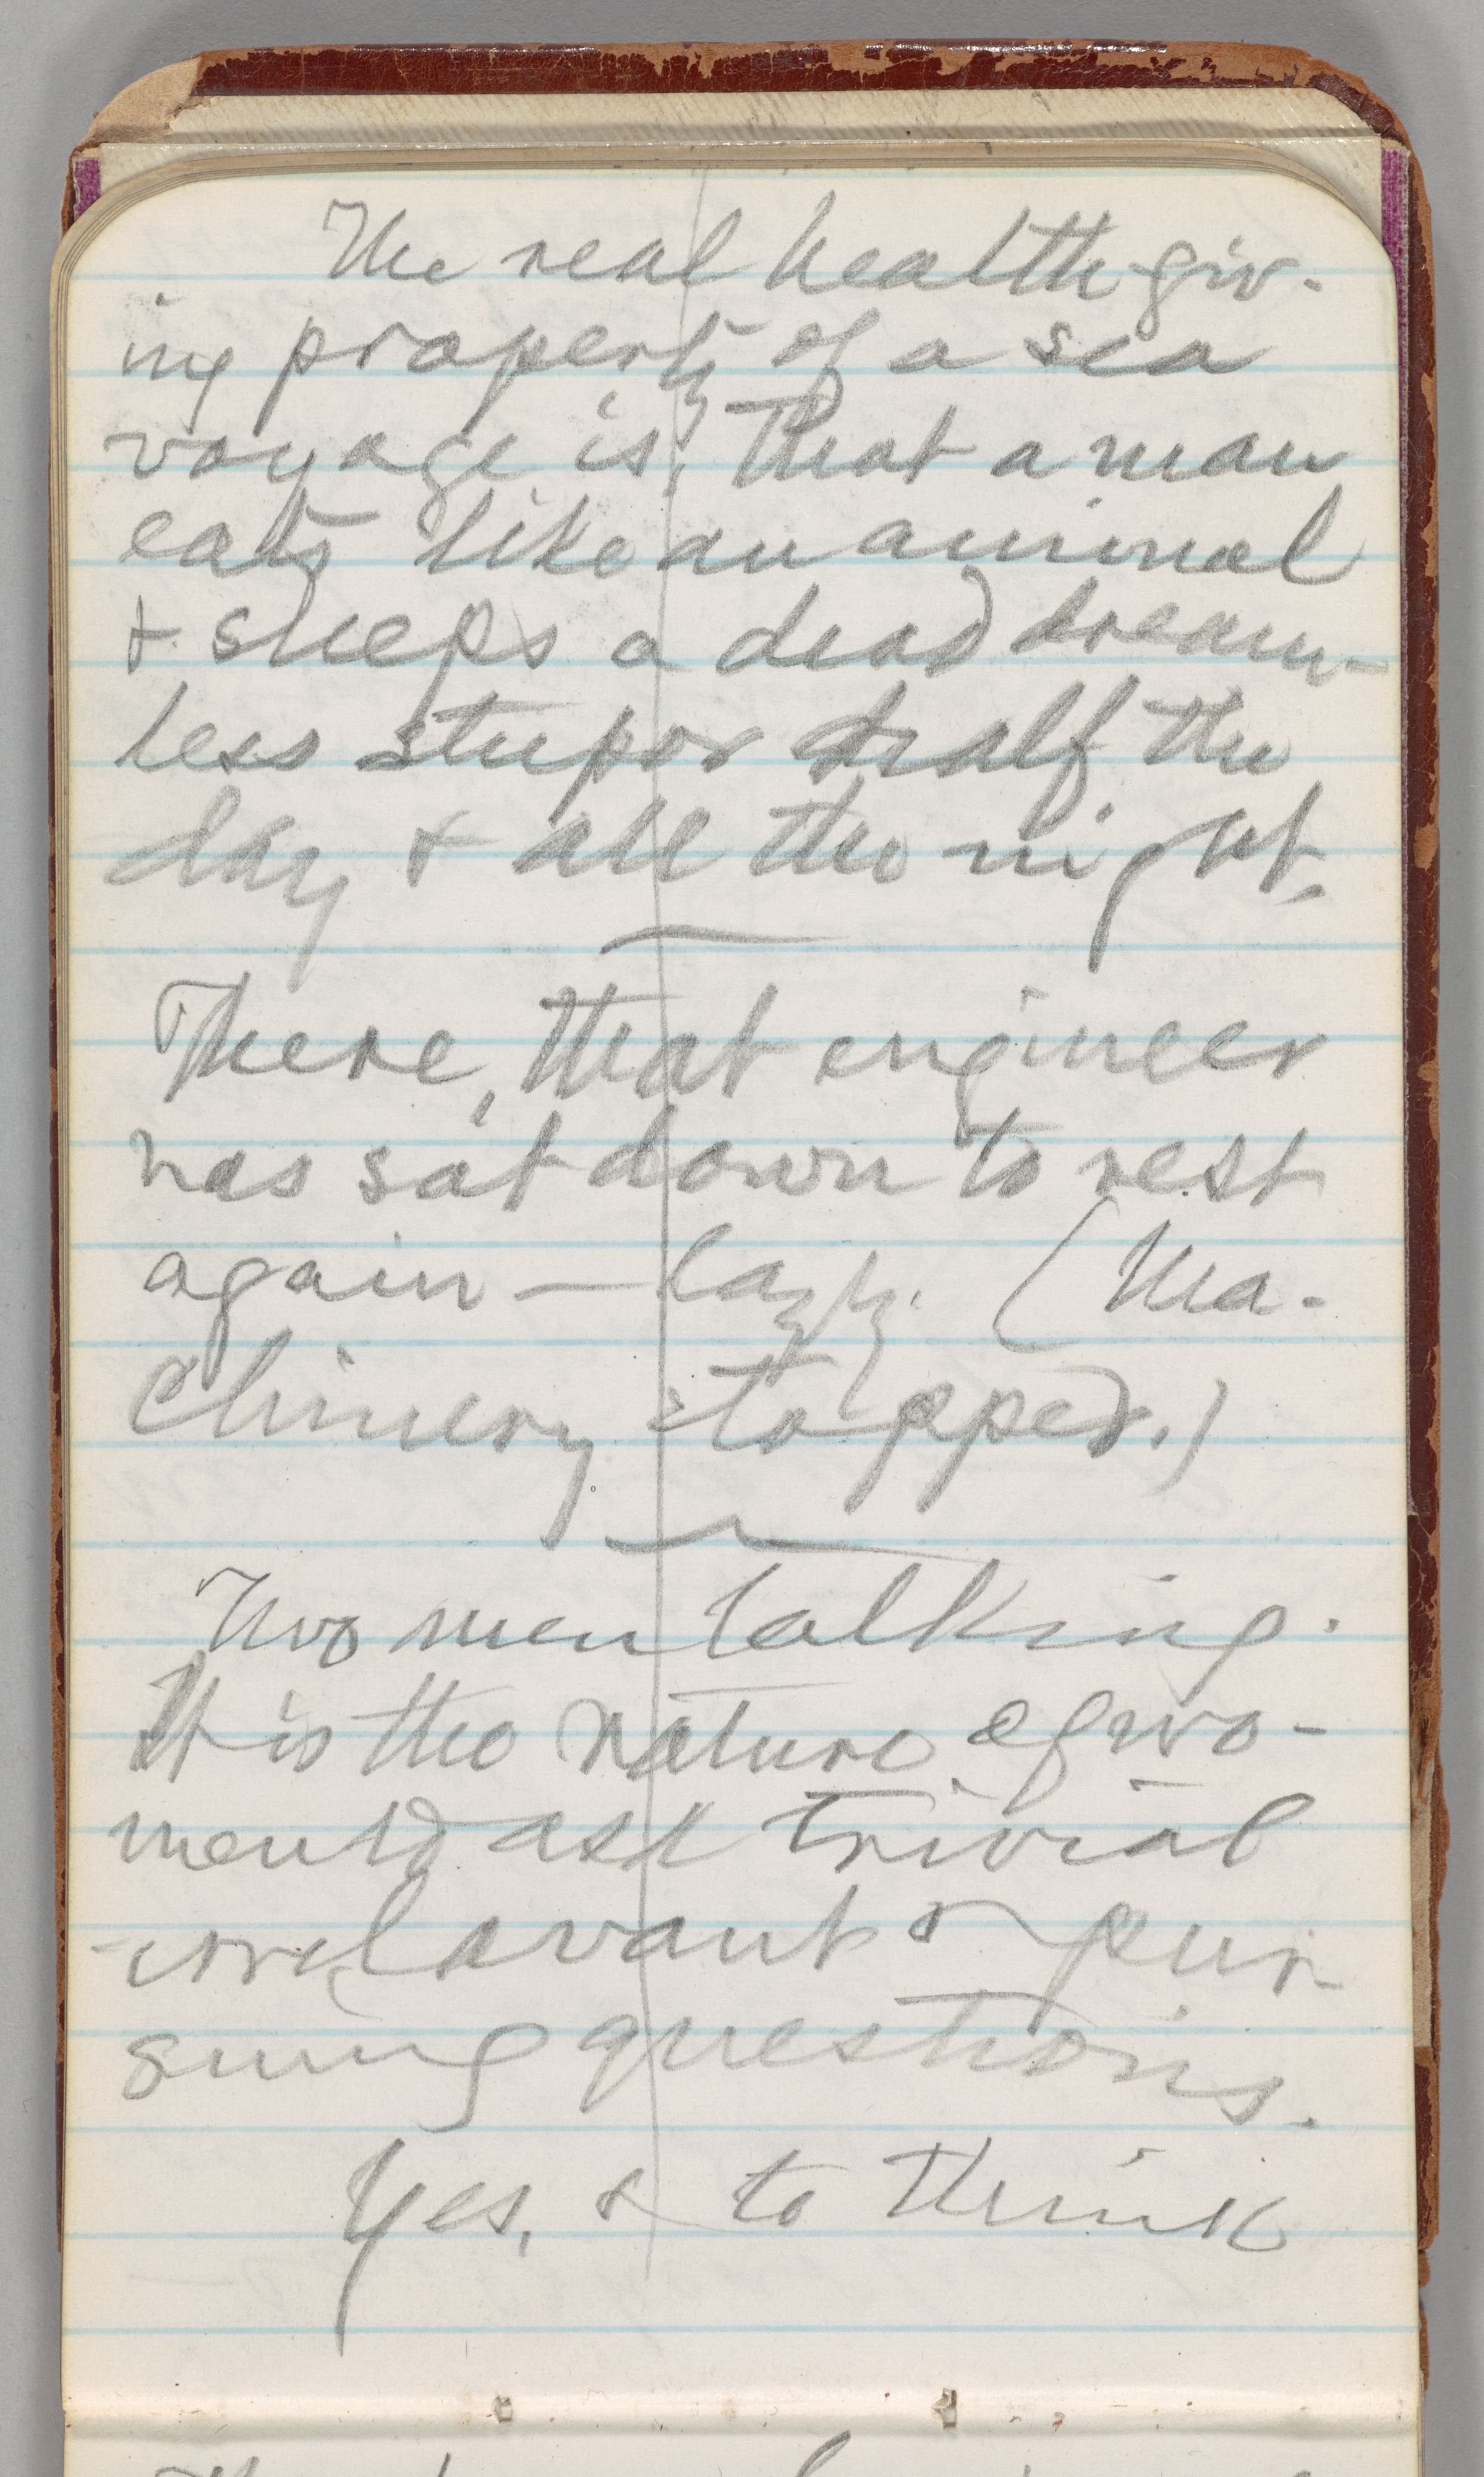 The real health giv-
ing property of a sea
voyage is, that a man
eats like an animal
& sleeps a dead dream-
less stupor half the
day & all the night.
There, that engineer
has sat down to rest
again — lazy. (Ma-
chinery stopped.)
Two men talking.
It is the nature of wo-
men to ask trivial
irrelavant & pur-
suing questions.
Yes, & to think